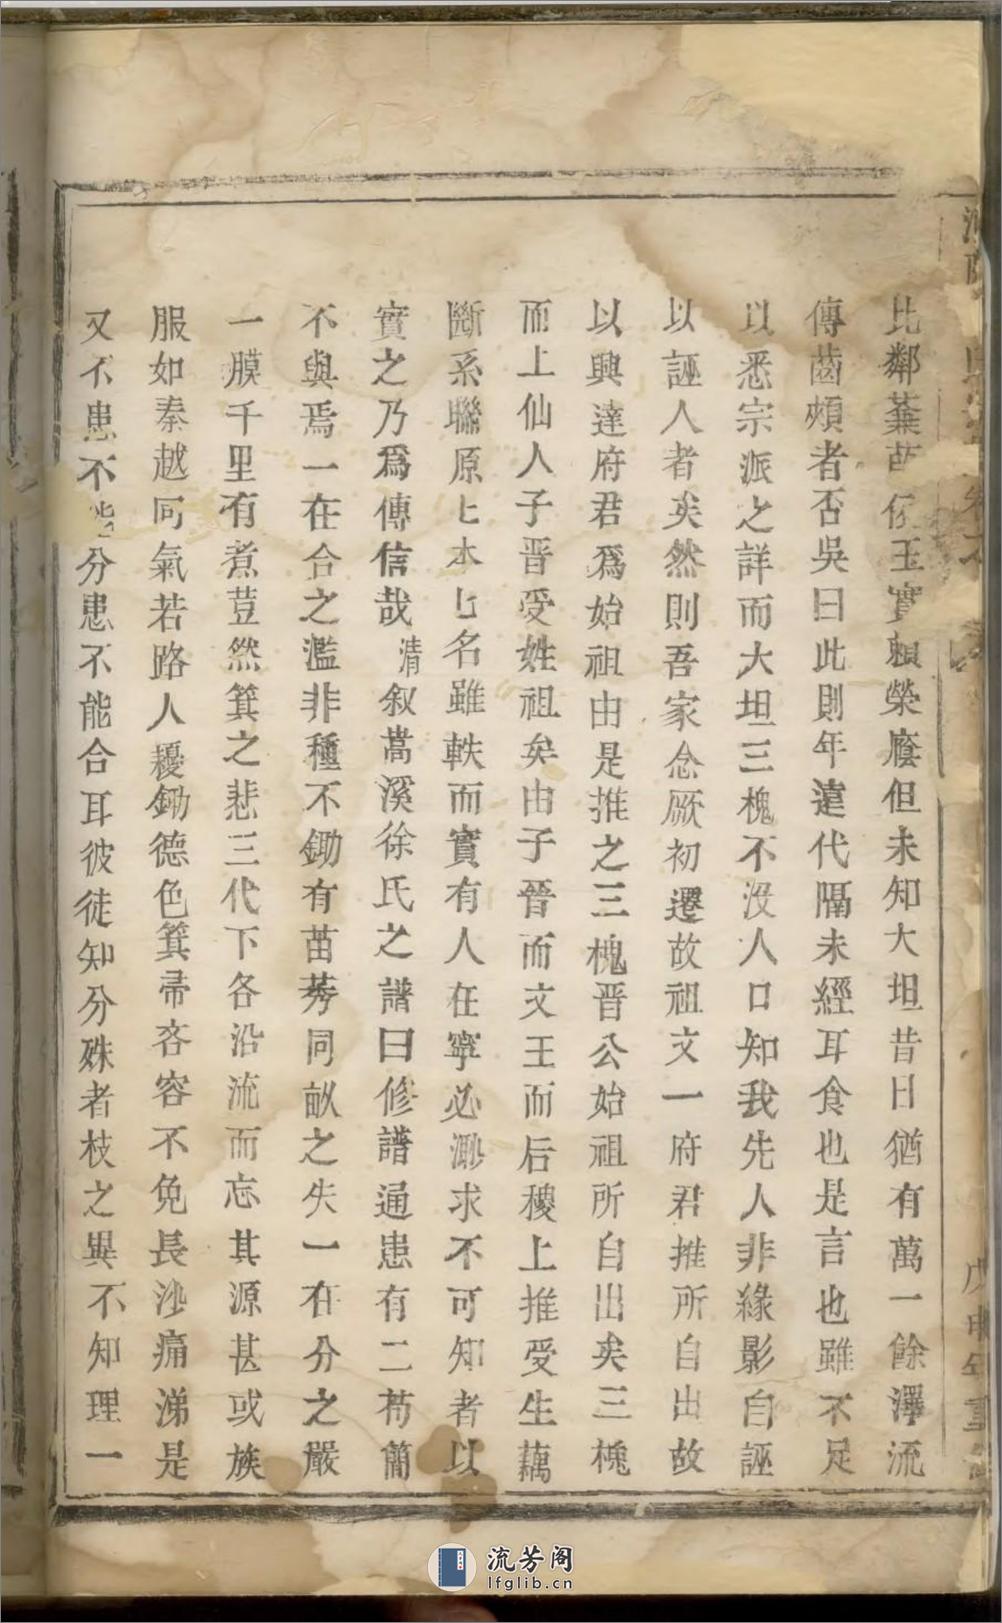 比鄰葉𦬊依玉實賴榮廕但未知大坦昔日猶有萬一餘澤流
傳齒頰者否吳曰此則年遠代隔未經耳食也是言也雖不足
以悉宗派之詳而大坦三槐不沒人口知我先人非緣影自誣
以誣人者矣然則吾家念厥初遷故祖文一府君推所自出故
以興達府君爲始祖由是推之三槐晋公始祖所自出矣三槐
而上仙人子晋受姓祖矣由子晉而文王而后稷上推受生藕
斷系聯原七本七名雖軼而實有人在寧必溯求不可知者以
實之乃爲傳信哉清叙蒿溪徐氏之譜曰修譜通患有二苟簡
不與焉一在合之濫非種不鋤有苗莠同畝之失一在分之嚴
一膜千里有煮荳然箕之悲三代下各沿流而忘其源甚或族
服如秦越同氣若路人耰鋤德色箕帚吝容不免長沙痛涕是
又不患不能分患不能合耳彼徒知分殊者枝之異不知理一
戊申年重
流芳阁
lfglib.cn